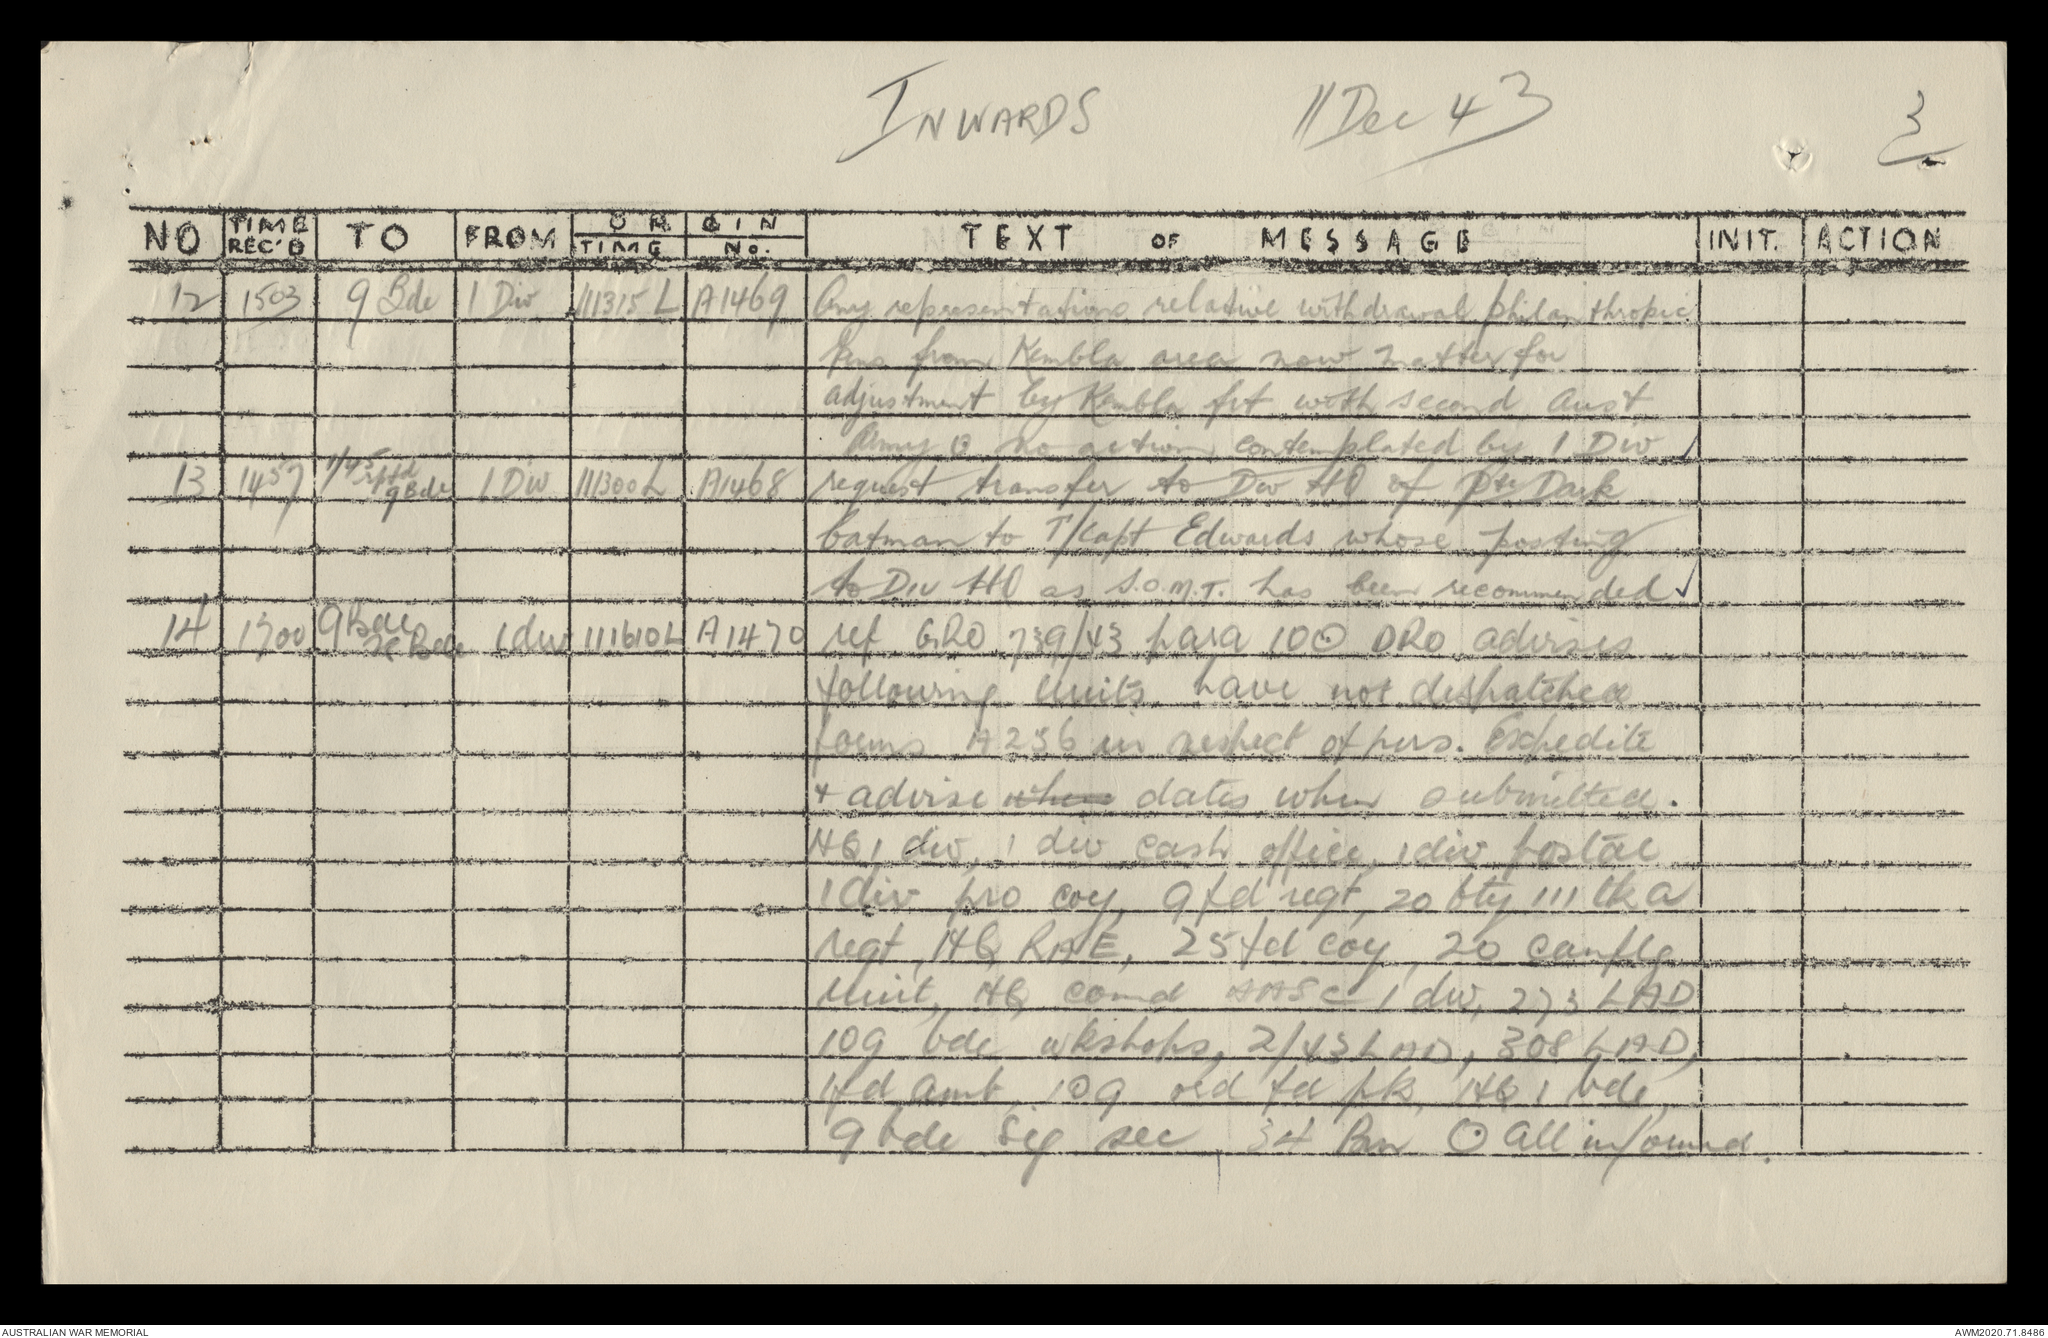 INWARDS 11 Dec 43 3
NO TIME REC'D TO FROM ORIGIN TIME No. TEXT OF MESSAGE INIT. ACTION
12 1503 9 Bde 1 Div 111315L A1469 Any representations relative withdrawal philanthropic
from Kembla area now matter for
adjustment by Kembla frt with second Aust
Army no action contemplated by 1 Div ✓
13 1457 1/45 rptd 9 Bde 1 Div 111300L A1468 request transfer to Div HQ of Pte Dark
batman to T/Capt Edwards whose posting
to Div HQ as S.O.M.T. has been recommended ✓
14 1700 9 Bde 28 Bde 1 div 111610L A1470 ref GRO 739/43 para 10 ⊙ DRO advises
following units have not despatched
forms A256 in respect of pers. Expedite
+ advise when dates when submitted.
HQ 1 div, 1 div cash office, 1 div postal
1 div pro coy, 9 fd regt, 20 bty 111 tk a
regt, HQ RAE, 25 fd coy, 20 camflg
unit, HQ comd AASC 1 div, 273 LAD
109 bde wkshops, 2/43 LAD, 308 LAD,
1 fd amb, 109 ord fd pk, HQ 1 bde,
9 bde Sig sec, 34 Bn ⊙ All informd.
AUSTRALIAN WAR MEMORIAL AWM2020.71.8486